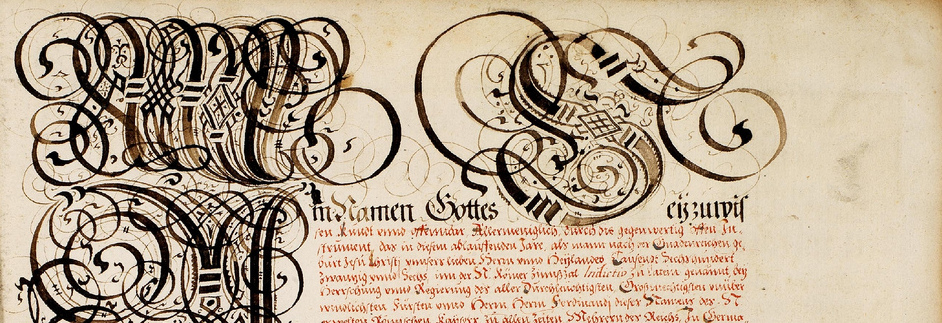 Im Namen Gottes Seÿ zu wis
sen kundt unnd offenbar Allermeniglich, durch dis gegenwertig offen In-
strument, das in diesem ablauffenden Jare, als mann nach der Gnadenreichen ge-
burt Jesu Christj unnsers lieben Herrn unnd Heÿlandes, Tausendt Sechshundert
Zwantzig unnd Sechs, inn der N. Römer Zinnszal Indictio zu latein genannt, beÿ
Herrschung unnd Regierung des aller Durchleuchtigsten Grosmechtigsten
Fürsten unnd Herrn Herrn Ferdinandj dieser Namens des N.
erwelten Römischen Kaÿsers zu allen Zeiten Mehrern des Reichs, In Germa-